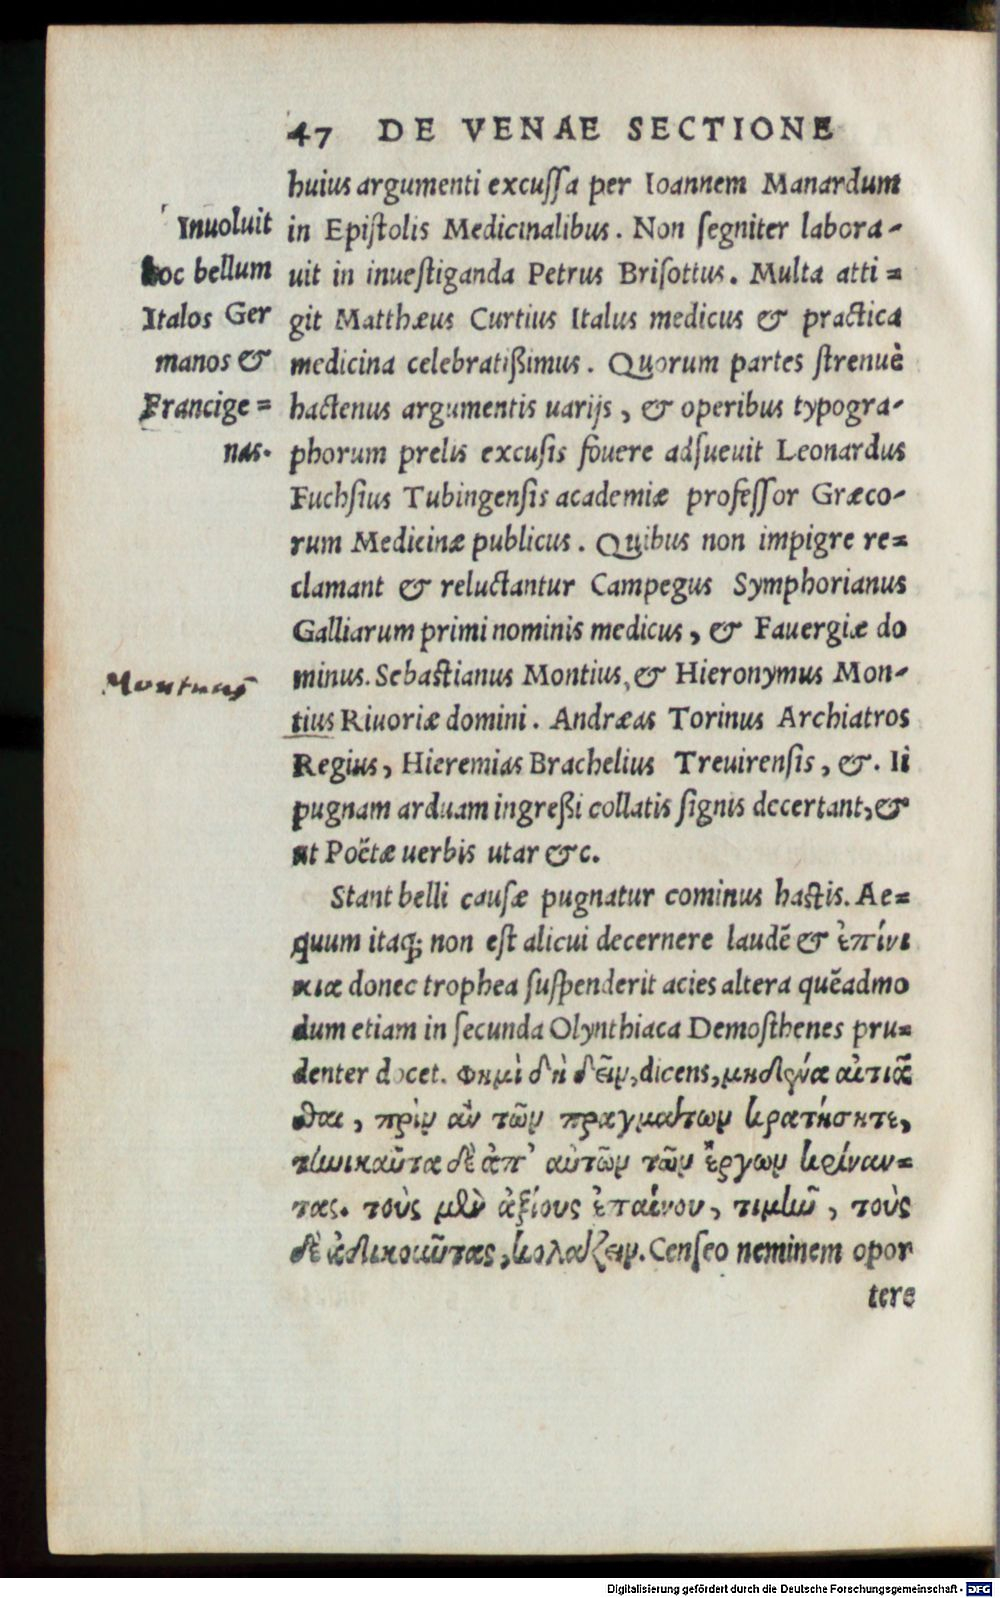 47 DE VENAE SECTIONE
huius argumenti excuſſa per Ioannem Manardum
in Epiſtolis Medicinalibus. Non ſegniter labora-
uit in inueſtiganda Petrus Briſottus. Multa atti=
git Matthæus Curtius Italus medicus & practica
medicina celebratißimus. Quorum partes ſtrenuè
hactenus argumentis uarijs, & operibus typogra-
phorum prelis excuſis fouere adſueuit Leonardus
Fuchſius Tubingenſis academiæ profeſſor Græco-
rum Medicinæ publicus. Quibus non impigre re=
clamant & reluctantur Campegus Symphorianus
Galliarum primi nominis medicus, & Fauergiæ do
minus. Sebastianus Montius, & Hieronymus Mon-
tius Riuoriæ domini. Andræas Torinus Archiatros
Regius, Hieremias Brachelius Treuirenſis, &. Ii
pugnam arduam ingreßi collatis ſignis decertant, &
ut Poëtæ uerbis utar &c.
Stant belli cauſæ pugnatur cominus hastis. Ae=
quum itaq; non eſt alicui decernere laudē & ἐπίνι
κια donec trophea ſuſpenderit acies altera quēadmo
dum etiam in ſecunda Olynthiaca Demoſthenes pru=
denter docet. Φημὶ δὴ δεῖν, dicens, μηδένα αἰτιᾶ
σθαι, πρὶν ἂν τῶν πραγμάτων κρατήσητε,
τηνικαῦτα δὲ ἀπ' αὐτῶν τῶν ἔργων κρίναν=
τας. τοὺς μὲν ἀξίους ἐπαίνου, τιμᾶν, τοὺς
δὲ ἀδικοῦντας, κολάζειν. Cenſeo neminem opor
tere
Inuoluit
hoc bellum
Italos Ger
manos &
Francige=
nas.
Montuus
Digitalisierung gefördert durch die Deutsche Forschungsgemeinschaft - DFG